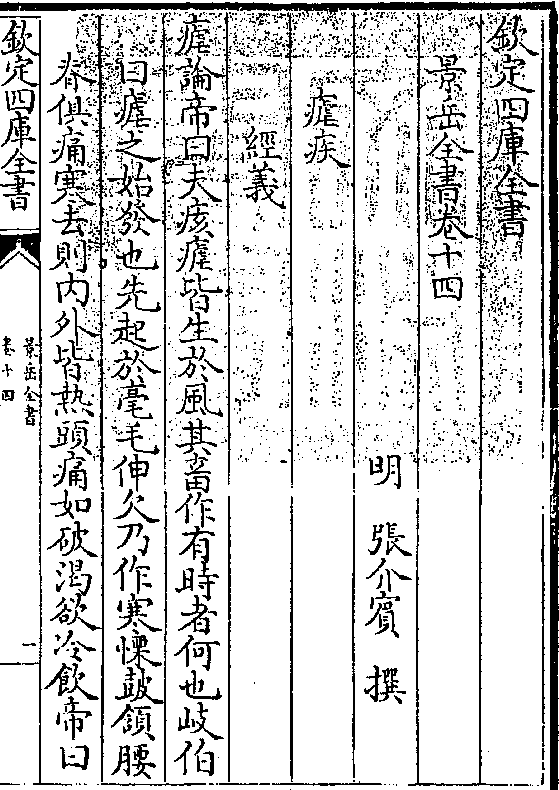 欽定四庫全書
景岳全書卷十四
明　張介賓　撰
瘧疾
經義
瘧論帝曰夫痎瘧皆生於風其畜作有時者何也岐伯
曰瘧之始發也先起於毫毛伸欠乃作寒慄鼓頷腰
脊俱痛寒去則内外皆熱頭痛如破渴欲冷飲帝曰
欽定四庫全書
景岳全書
卷十四
一